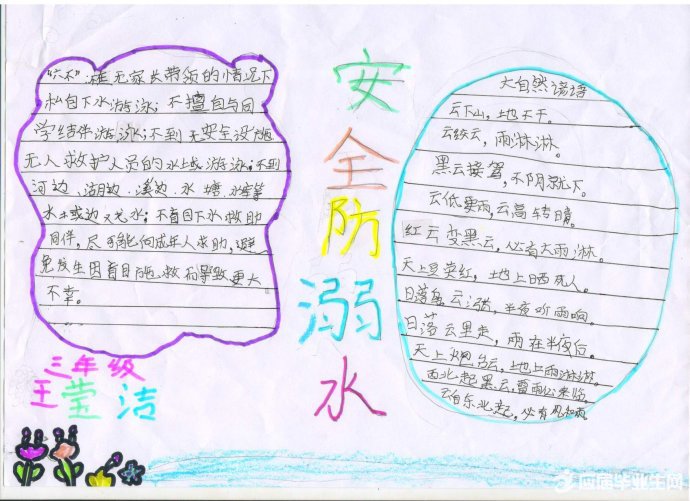 “六不”:在无家长带领的情况下
私自下水游泳；不擅自与同
学结伴游泳；不到无安全设施
无人救护人员的水域游泳；不到
河边、湖边、溪边、水塘、水库等
水域边
水；不盲目下水救助
同伴，尽可能向成年人求助，避
免发生因盲目施救而导致更大
不幸。
三年级
王莹洁
安全防溺水
大自然谚语
云下山，地不干。
云绞云，雨淋淋。
黑云接驾，不阴就下。
云低要雨，云高转晴。
红云变黑云，必有大雨淋。
天上豆荚红，地上晒死人。
日落乌云涨，半夜听雨响。
日落云里走，雨在半夜后。
天上炮台云，地上雨淋淋。
西北起黑云，雷雨必来临。
云自东北起，必有风和雨。
应届毕业生网